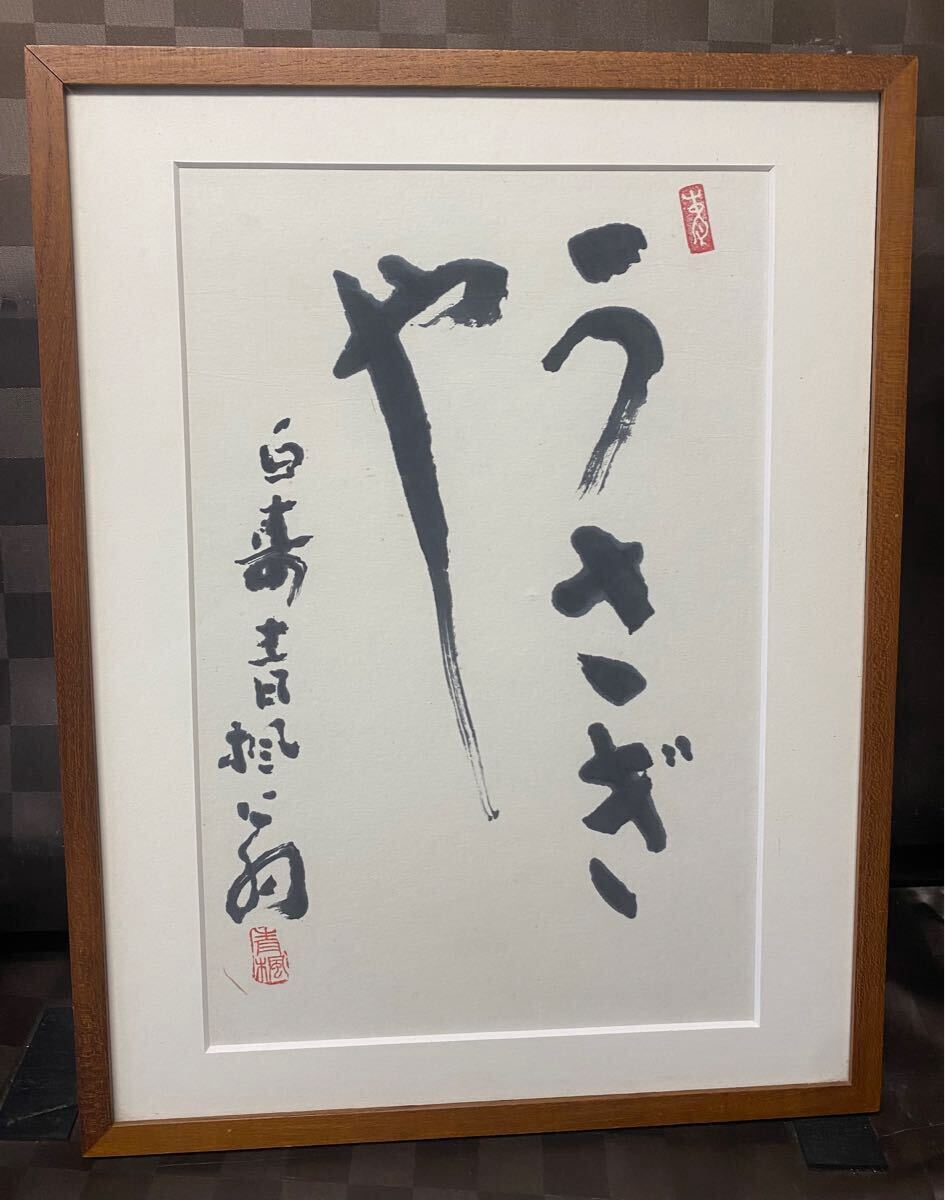 うさぎ
や
白寿 青楓翁
青楓